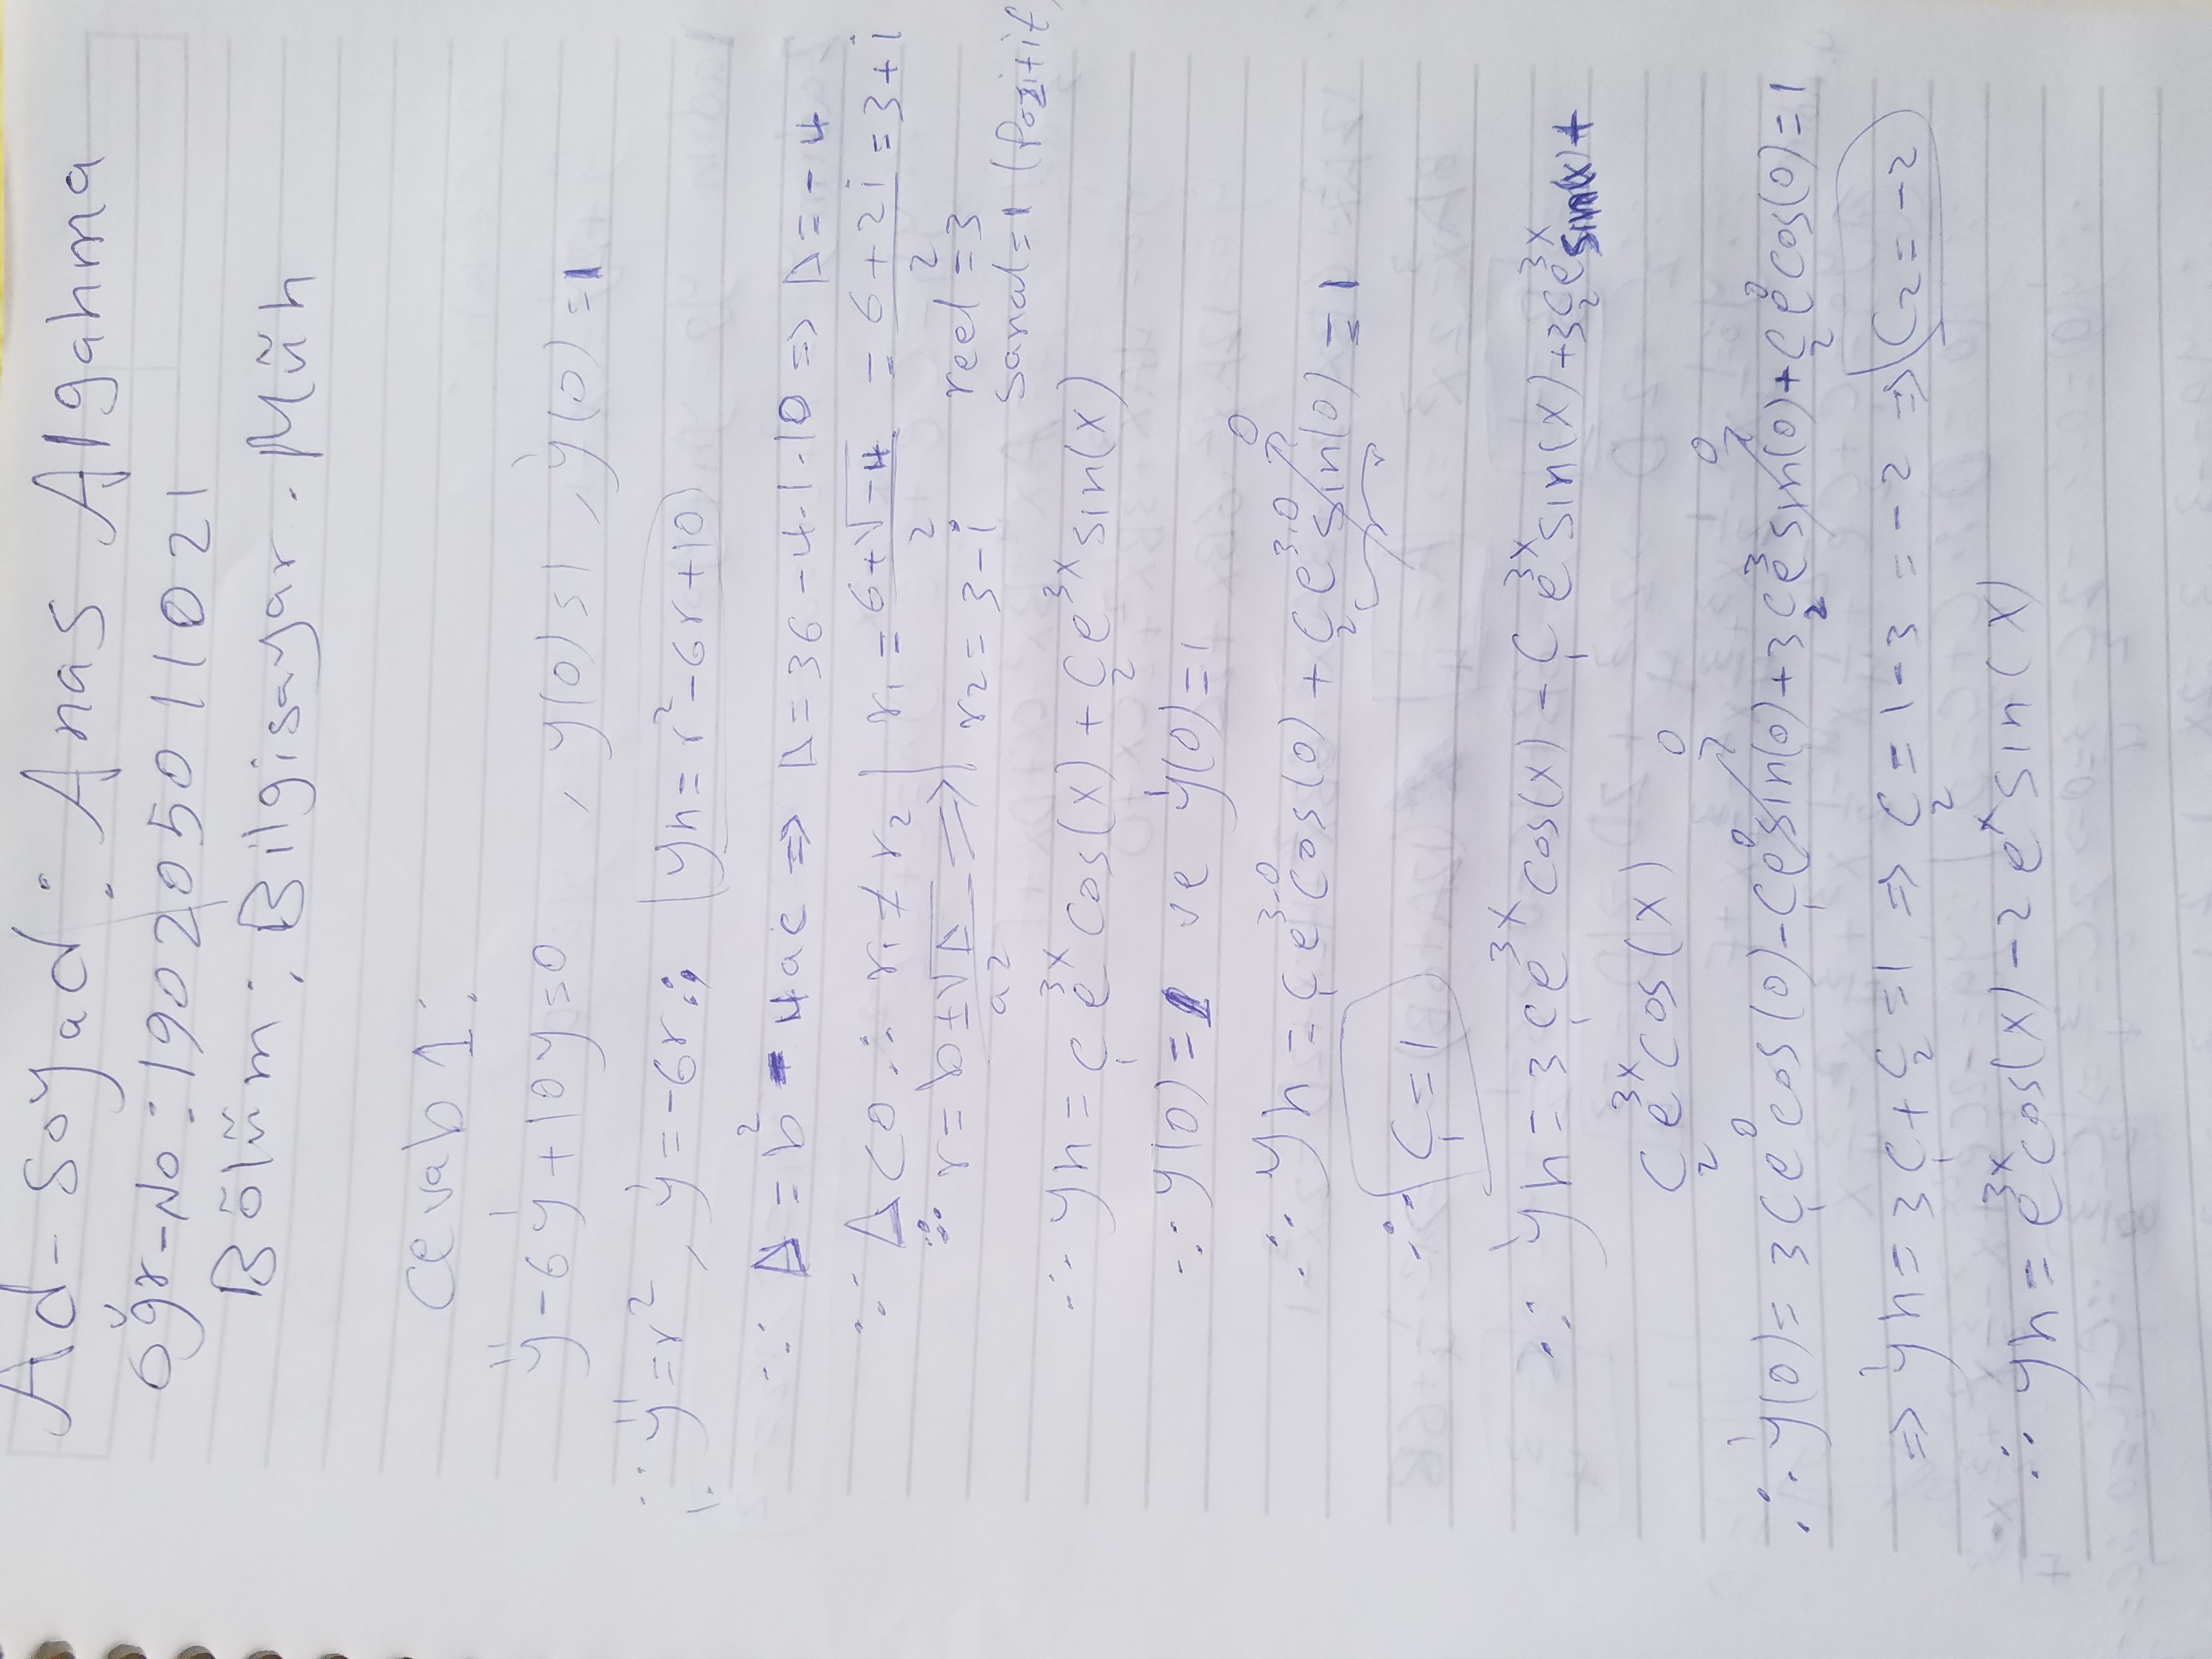 Ad-Soyad: Anas Algahma
Öğr-No: 190205011021
Bölüm: Bilgisayar. Müh
Cevab 1:
y''-6y'+10y=0 , y(0)=1 , y'(0)=1
∵ y''=r², y'=-6r ∴ yh=r²-6r+10
∵ Δ=b²-4ac ⇒ Δ=36-4.1.10 ⇒ Δ=-4
∵ Δ<0 ∴ r₁≠r₂ | r₁=(6+√-4)/2 = (6+2i)/2 = 3+i
∵ r=(b±√Δ)/a2 ⇒ | r₂=3-i reel=3
sanal=1 (Pozitif)
∴ yh=C₁e^3x cos(x)+C₂e^3x sin(x)
∵ y(0)=1 ve y'(0)=1
∴ yh=C₁e^3.0 cos(0)+C₂e^3.0 sin(0)=1 0
∴ C₁=1
∵ y'h=3C₁e^3x cos(x)-C₁e^3x sin(x)+3C₂e^3x sin(x)+
C₂e^3x cos(x)
∴ y'(0)=3C₁e^0 cos(0)-C₁e^0 sin(0)+3C₂e^3 sin(0)+C₂e^0 cos(0)=1 0 0
⇒ y'h=3C₁+C₂=1 ⇒ C₂=1-3=-2 ⇒ C₂=-2
∴ yh=e^3x cos(x)-2e^x sin(x)